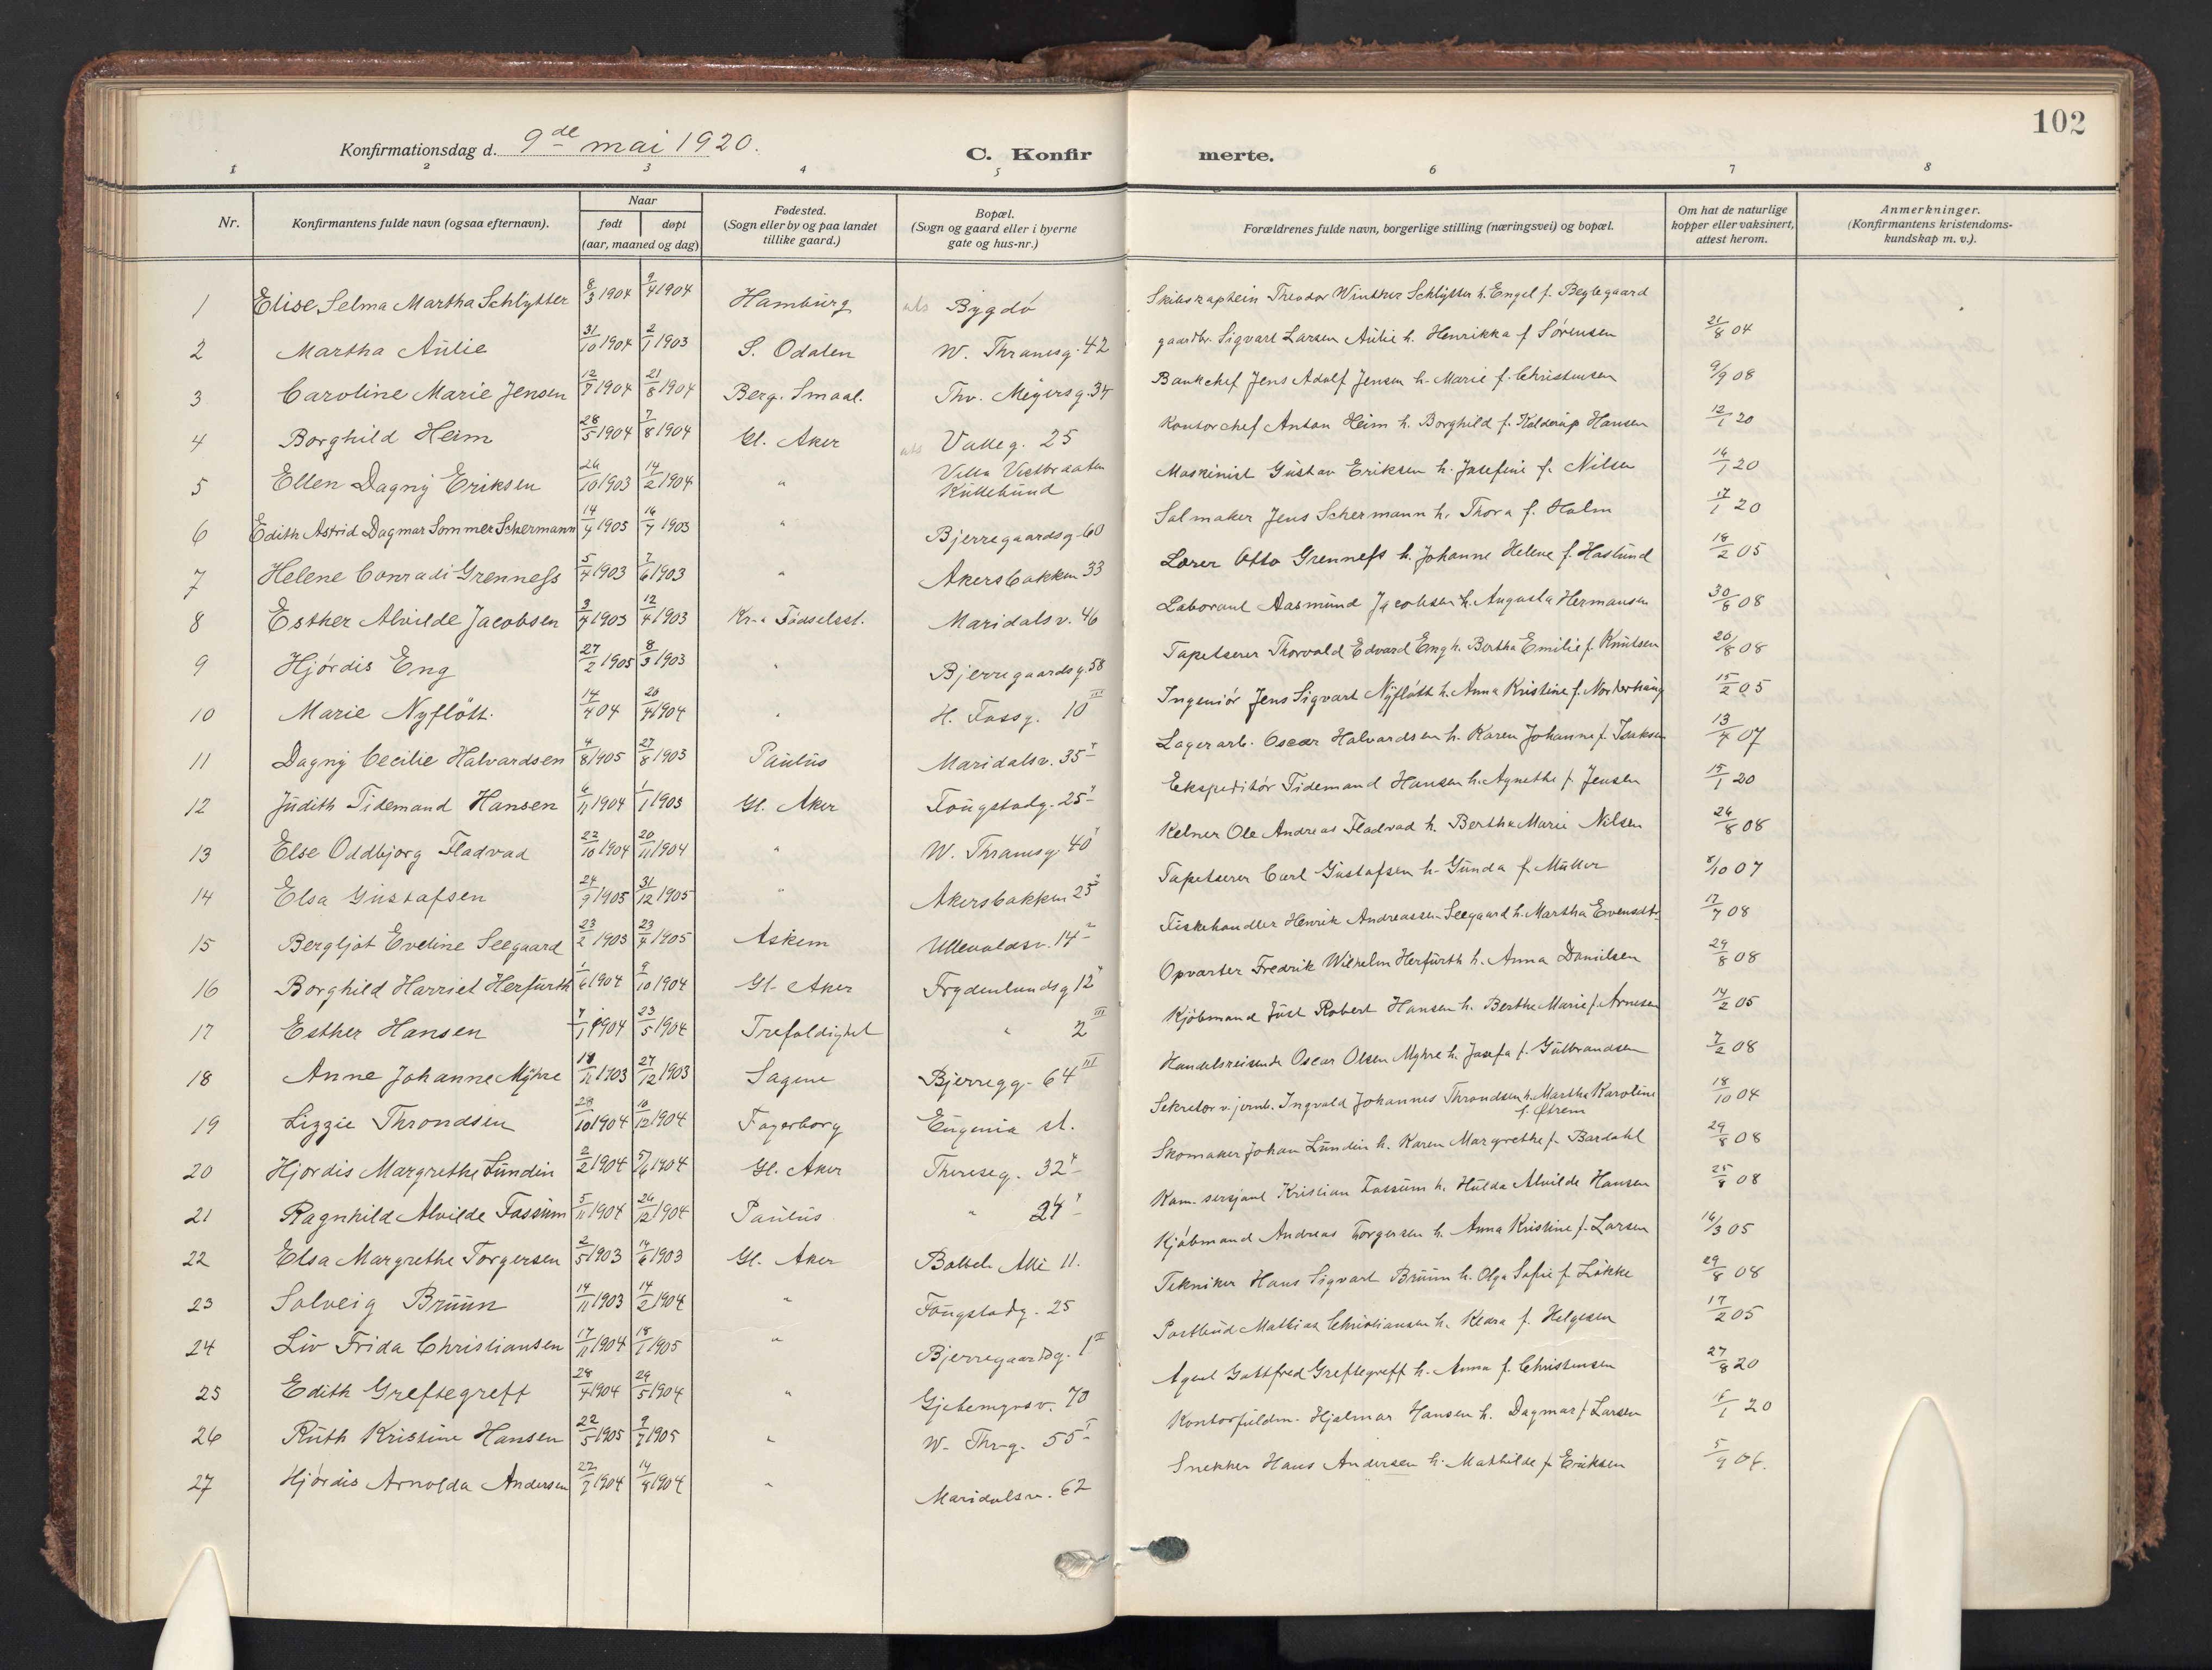 102
Konfirmationsdag d. 9de mai 1920.
C. Konfirmerte.
1 2 3 4 5 6 7 8
Nr.
Konfirmantens fulde navn (ogsaa efternavn).
Naar
født døpt
(aar, maaned og dag)
Fødested.
(Sogn eller by og paa landet
tillike gaard.)
Bopæl.
(Sogn og gaard eller i byerne
gate og hus-nr.)
Forældrenes fulde navn, borgerlige stilling (næringsvei) og bopæl.
Om hat de naturlige
kopper eller vaksinert,
attest herom.
Anmerkninger.
(Konfirmantens kristendoms-
kundskap m. v.).
1 Elise Selma Martha Schlytter 8/3 1904 9/4 1904 Hamburg Bygdö Skibskaptein Theodor Winther Schlytter h. Engel f.
2 Martha Aulie 31/10 1904 2/1 1903 S. Odalen W. Thranesg. 42 gaardbr. Sigvart Larsen Aulie h. Henrikka f Sørensen 21/8 04
3 Caroline Marie Jensen 12/7 1904 21/8 1904 Berg. Smaal. Thv. Meyersg. 34 Bankchef Jens Adolf Jensen h. Marie f. Christensen 9/9 08
4 Borghild Heim 28/5 1904 7/8 1904 Gl. Aker Valleg. 25 Kontorchef Anton Heim h. Borghild f. Kolderup Hansen 12/1 20
5 Ellen Dagny Eriksen 26/10 1903 14/2 1904 " Villa Vestbraaten Maskinist Gustav Eriksen h. Josefine f. Nilsen 14/1 20
Kullebund
6 Edith Astrid Dagmar Sommer Schermann 14/4 1905 16/7 1903 " Bjerregaardsg. 60 Salmaker Jens Schermann h. Thora f. Holm 17/1 20
7 Helene Conradi Grenness 5/4 1903 7/6 1903 " Akersbakken 33 Lærer Otto Grenness h. Johanne Helene f. Haslund 18/2 05
8 Esther Alvilde Jacobsen 3/4 1903 12/4 1903 Kr.a Fødselsst. Maridalsv. 46 Laborant Aasmund Jacobsen h. Augusta Hermansen 30/8 08
9 Hjördis Eng 27/2 1905 8/3 1903 " Bjerregaardsg. 58 Tapetserer Thorvald Edvard Eng h. Bertha Emilie f. Knutsen 20/8 08
10 Marie Nyflött. 14/4 04 20/4 1904 " H. Fossg. 10 III Ingeniör Jens Sigvart Nyflött h. Anna Kristine f. 15/2 05
11 Dagny Cecilie Halvardsen 4/8 1905 27/8 1903 Paulus Maridalsv. 35 Lagerarb. Oscar Halvardsen h. Karen Johanne f. Isaksen 13/4 07
12 Judith Tidemand Hansen 6/11 1904 1/1 1903 Gl. Aker Fougstadg. 25 Ekspeditör Tidemand Hansen h. Agnethe f. Jensen 15/1 20
13 Else Oddbjorg Fladvad 22/10 1904 20/11 1904 " W. Thranesg. 40 Kelner Ole Andreas Fladvad h. Berthe Marie Nilsen 26/8 08
14 Elsa Gustafsen 24/9 1905 31/12 1905 " Akersbakken 25 Tapetserer Carl Gustafsen h. Gunda f Müller 8/10 07
15 Bergljot Eveline Seegaard 23/2 1903 23/4 1905 Askim Ullevoldsv. 14 Fiskehandler Henrik Andreassen Seegaard h. Martha Evensdtr. 17/7 08
16 Borghild Harriet Herfurth 1/6 1904 9/10 1904 Gl. Aker Frydenlundsg 12 Opvarter Fredrik Wilhelm Herfurth h. Anna Danielsen 29/8 08
17 Esther Hansen 7/1 1904 23/5 1904 Trefoldighet " 2 III Kjöbmand Just Robert Hansen h. Berthe Marie f. Arnesen 14/2 05
18 Anne Johanne Myhre 18/11 1903 27/12 1903 Sagene Bjerregg. 64 III Handelsreisende Oscar Olsen Myhre h. Josefa f. Gulbrandsen 7/2 08
19 Lizzie Throndsen 28/10 1904 18/12 1904 Fagerborg Eugenia st. Sekretær v. jernb. Ingvald Johannes Throndsen h. Martha Karoline 18/10 04
f. Østrem
20 Hjordis Margrethe Lundin 2/2 1904 5/6 1904 Gl. Aker Thereseg. 32 Skomaker Johan Lundin h. Karen Margrethe f. Bardahl 29/8 08
21 Ragnhild Alvilde Fossum 5/11 1904 26/12 1904 Paulus " 24 Kam. sersjant Kristian Fossum h. Hulda Alvilde Hansen 25/8 08
22 Elsa Margrethe Torgersen 2/5 1903 14/6 1903 Gl. Aker Boltel. Alle 11. Kjöbmand Andreas Torgersen h. Anna Kristine f. Larsen 16/3 05
23 Solveig Bruun 14/11 1903 14/2 1904 " Fougstadg. 25 Tekniker Hans Sigvart Bruun h. Olga Sofie f. Lökke 29/8 08
24 Liv Frida Christiansen 17/11 1904 18/1 1905 " Bjerregaardsg. 1 II Postbud Mathias Christiansen h. Keara f. Helgesen 17/2 05
25 Edith Greftegreff 28/4 1904 29/5 1904 " Gjetemyrsv. 70 Agent Gottfred Greftegreff h. Anna f. Christensen 27/8 20
26 Ruth Kristine Hansen 22/5 1905 9/7 1905 " W. Thr.g. 55 I Kontorfuldm. Hjalmar Hansen h. Dagmar f Larsen 15/1 20
27 Hjördis Arnolda Andersen 22/2 1904 14/4 1904 " Maridalsv. 62 Snekker Hans Andersen h. Mathilde f Eriksen 5/9 04.